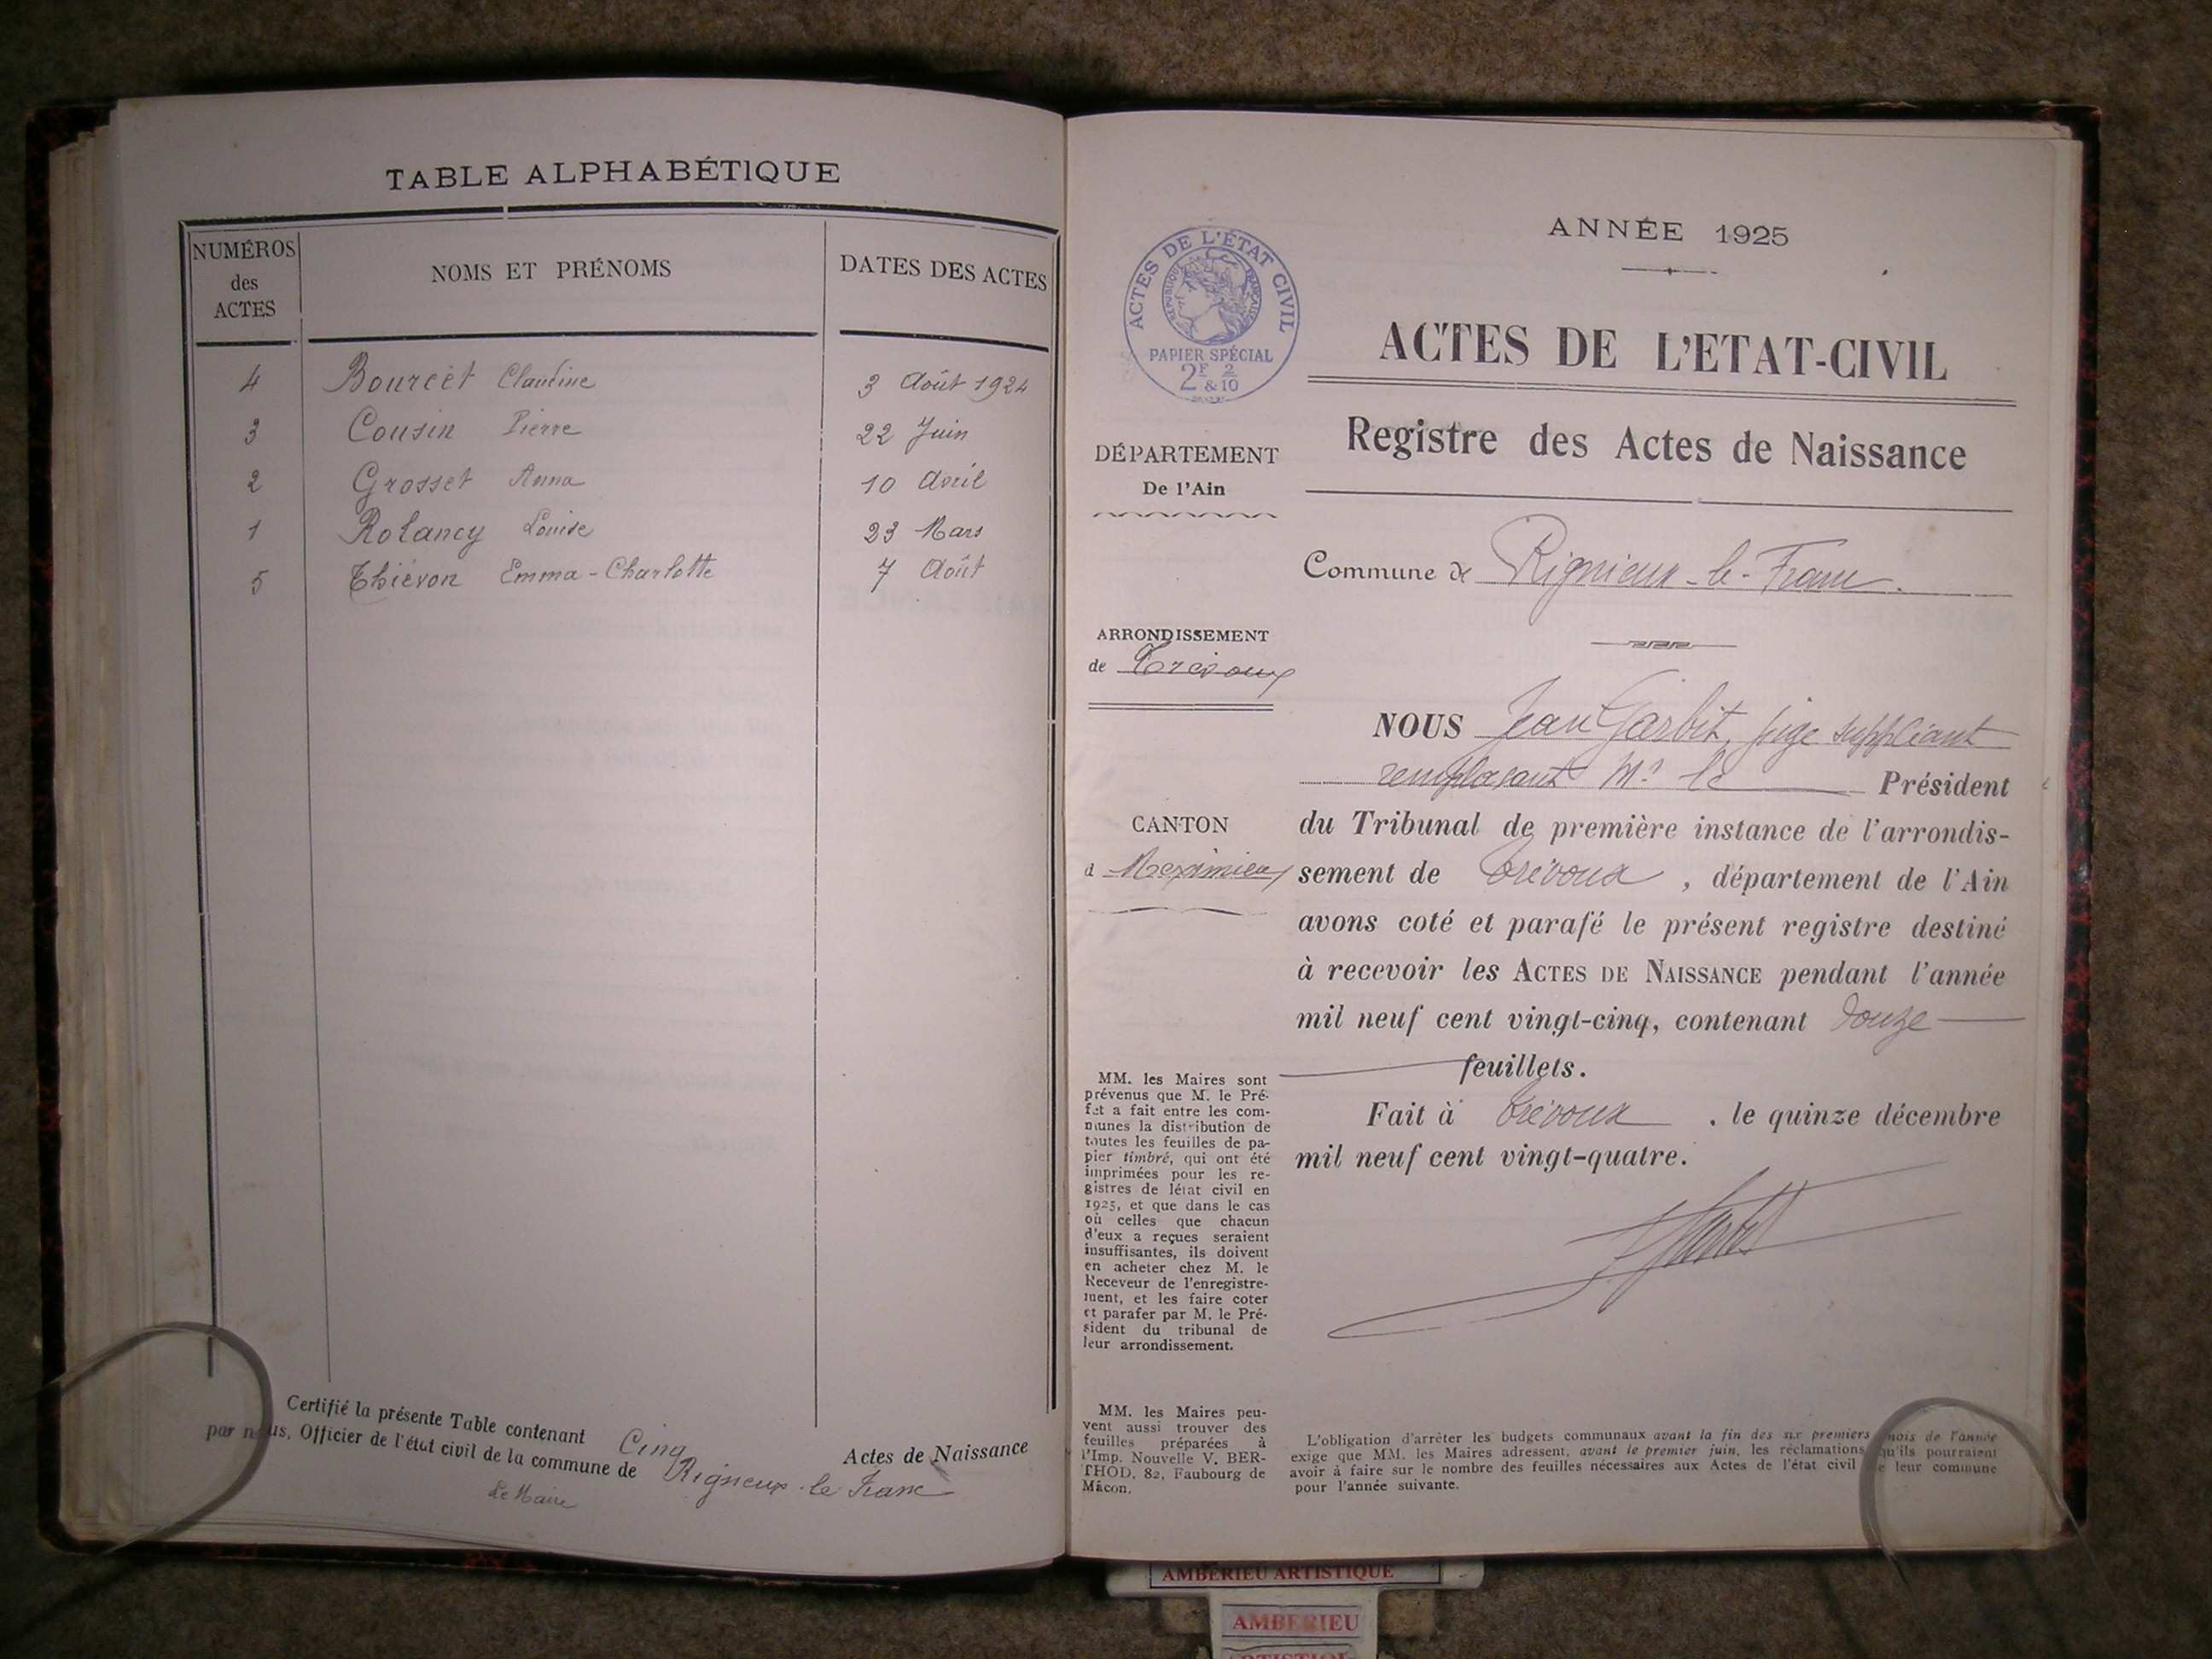 TABLE ALPHABÉTIQUE
NUMÉROS
des
ACTES
NOMS ET PRÉNOMS
DATES DES ACTES
4 Bourcet Claudine 3 Août 1924
3 Cousin Pierre 22 Juin
2 Grosset Anna 10 Avril
1 Rolancy Louise 23 Mars
5 Thiévon Emma-Charlotte 7 Août
Certifié la présente Table contenant Cinq Actes de Naissance
par nous, Officier de l'état civil de la commune de Rigneux-le-Franc
Le Maire
ANNÉE 1925
ACTES DE L'ÉTAT CIVIL
RÉPUBLIQUE FRANÇAISE
PAPIER SPÉCIAL
2F 2
& 10
ACTES DE L'ETAT-CIVIL
Registre des Actes de Naissance
DÉPARTEMENT
De l'Ain
Commune de Rignieux-le-Franc.
ARRONDISSEMENT
de Trévoux
CANTON
d Meximieux
NOUS Jean Garbit, juge suppléant
remplaçant Mr le Président
du Tribunal de première instance de l'arrondis-
sement de Trévoux , département de l'Ain
avons coté et parafé le présent registre destiné
à recevoir les ACTES DE NAISSANCE pendant l'année
mil neuf cent vingt-cinq, contenant douze
feuillets.
Fait à Trévoux , le quinze décembre
mil neuf cent vingt-quatre.
MM. les Maires sont
prévenus que M. le Pré-
fet a fait entre les com-
munes la distribution de
toutes les feuilles de pa-
pier timbré, qui ont été
imprimées pour les re-
gistres de létat civil en
1925, et que dans le cas
où celles que chacun
d'eux a reçues seraient
insuffisantes, ils doivent
en acheter chez M. le
Receveur de l'enregistre-
ment, et les faire coter
et parafer par M. le Pré-
sident du tribunal de
leur arrondissement.
MM. les Maires peu-
vent aussi trouver des
feuilles préparées à
l'Imp. Nouvelle V. BER-
THOD, 82, Faubourg de
Mâcon.
L'obligation d'arrêter les budgets communaux avant la fin des six premiers mois de l'année
exige que MM. les Maires adressent, avant le premier juin, les réclamations qu'ils pourraient
avoir à faire sur le nombre des feuilles nécessaires aux Actes de l'état civil de leur commune
pour l'année suivante.
AMBERIEU ARTISTIQUE
AMBERIEU
ARTISTIQUE